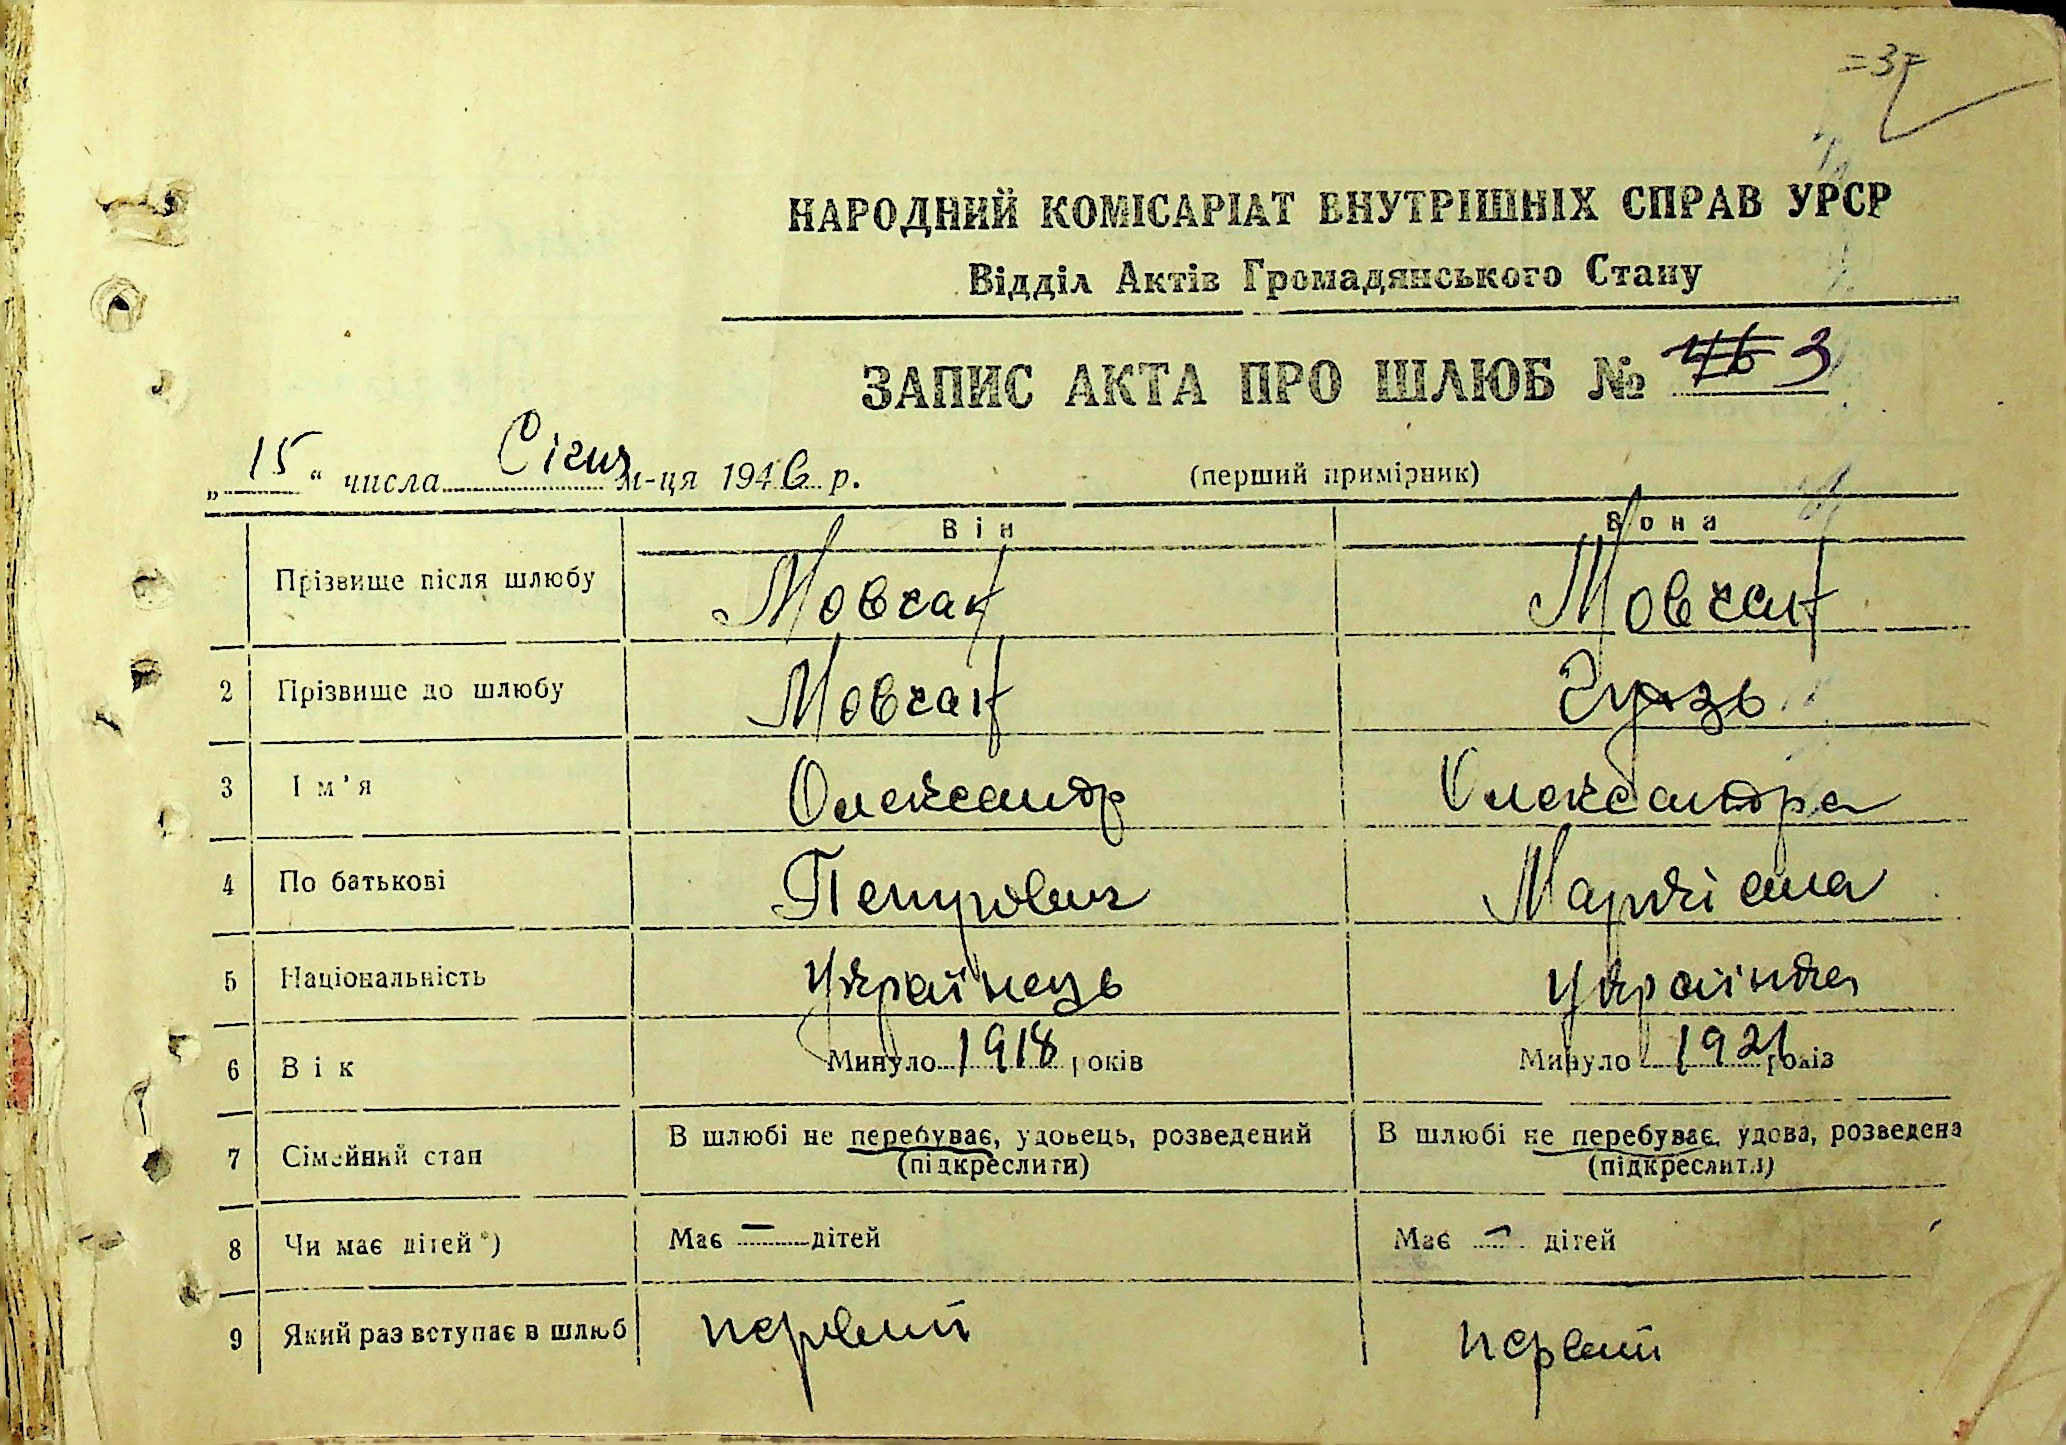 =37
НАРОДНИЙ КОМІСАРІАТ ВНУТРІШНІХ СПРАВ УРСР
Відділ Актів Громадянського Стану
ЗАПИС АКТА ПРО ШЛЮБ № 3
„15“ числа Січня м-ця 1946 р. (перший примірник)
Він Вона
Прізвище після шлюбу Мовчан Мовчан
2 Прізвище до шлюбу Мовчан
3 Ім'я Олександр Олександра
4 По батькові Петрович
5 Національність Українець Українка
6 Вік Минуло 1918 років Минуло 1921 років
7 Сімейний стан В шлюбі не перебуває, удовець, розведений (підкреслити) В шлюбі не перебуває, удова, розведена (підкреслити)
8 Чи має дітей *) Має — дітей Має — дітей
9 Який раз вступає в шлюб первий первий